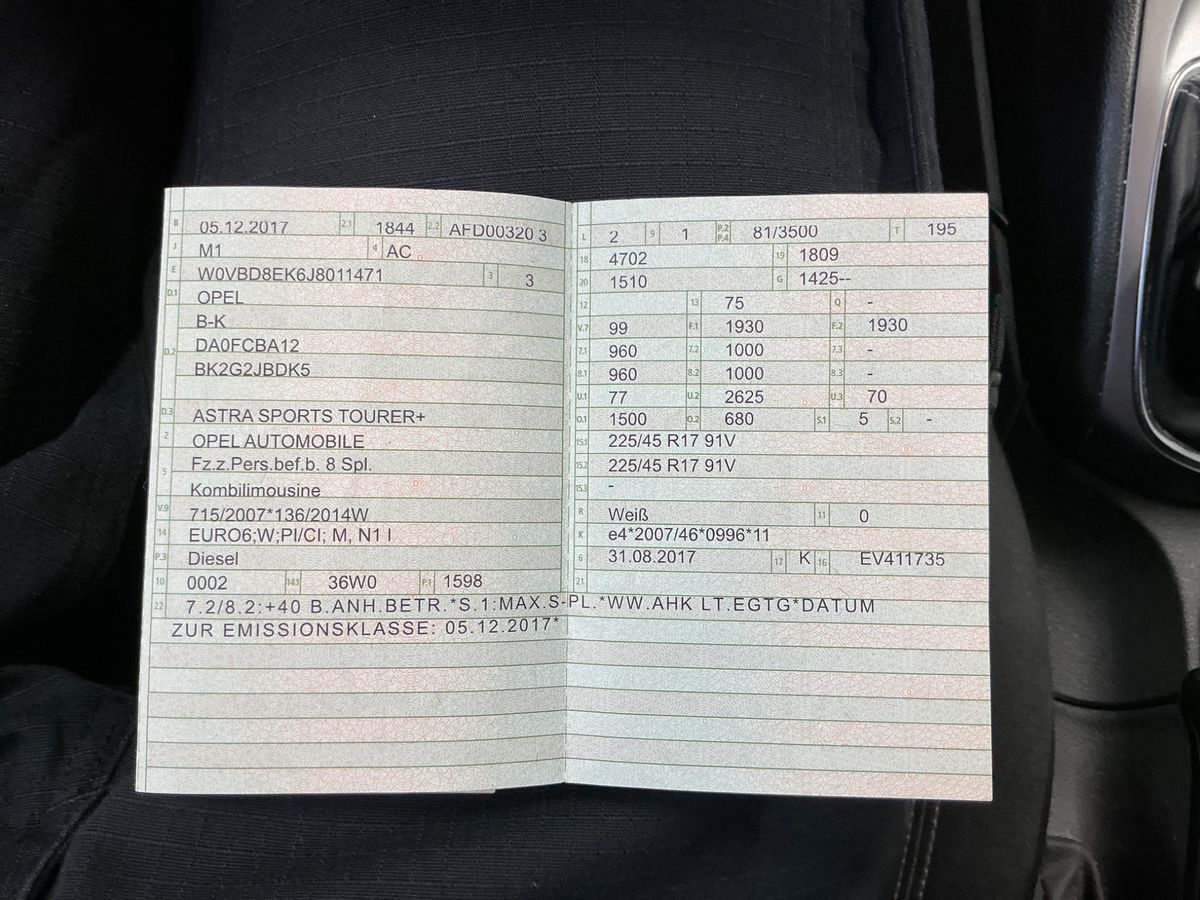 B 05.12.2017 2.1 1844 2.2 AFD00320 3
J M1 4 AC
E W0VBD8EK6J8011471 3 3
D.1 OPEL
B-K
D.2 DA0FCBA12
BK2G2JBDK5
D.3 ASTRA SPORTS TOURER+
2 OPEL AUTOMOBILE
5 Fz.z.Pers.bef.b. 8 Spl.
Kombilimousine
V.9 715/2007*136/2014W
14 EURO6;W;PI/CI; M, N1 I
P.3 Diesel
10 0002 14.1 36W0 P.1 1598
L 2 9 1 P.2 P.4 81/3500 T 195
18 4702 19 1809
20 1510 G 1425--
12 13 75 Q -
V.7 99 F.1 1930 F.2 1930
7.1 960 7.2 1000 7.3 -
8.1 960 8.2 1000 8.3 -
U.1 77 U.2 2625 U.3 70
O.1 1500 O.2 680 S.1 5 S.2 -
15.1 225/45 R17 91V
15.2 225/45 R17 91V
15.3 -
R Weiß 11 0
K e4*2007/46*0996*11
6 31.08.2017 17 K 16 EV411735
21
22 7.2/8.2:+40 B.ANH.BETR.*S.1:MAX.S-PL.*WW.AHK LT.EGTG*DATUM
ZUR EMISSIONSKLASSE: 05.12.2017*